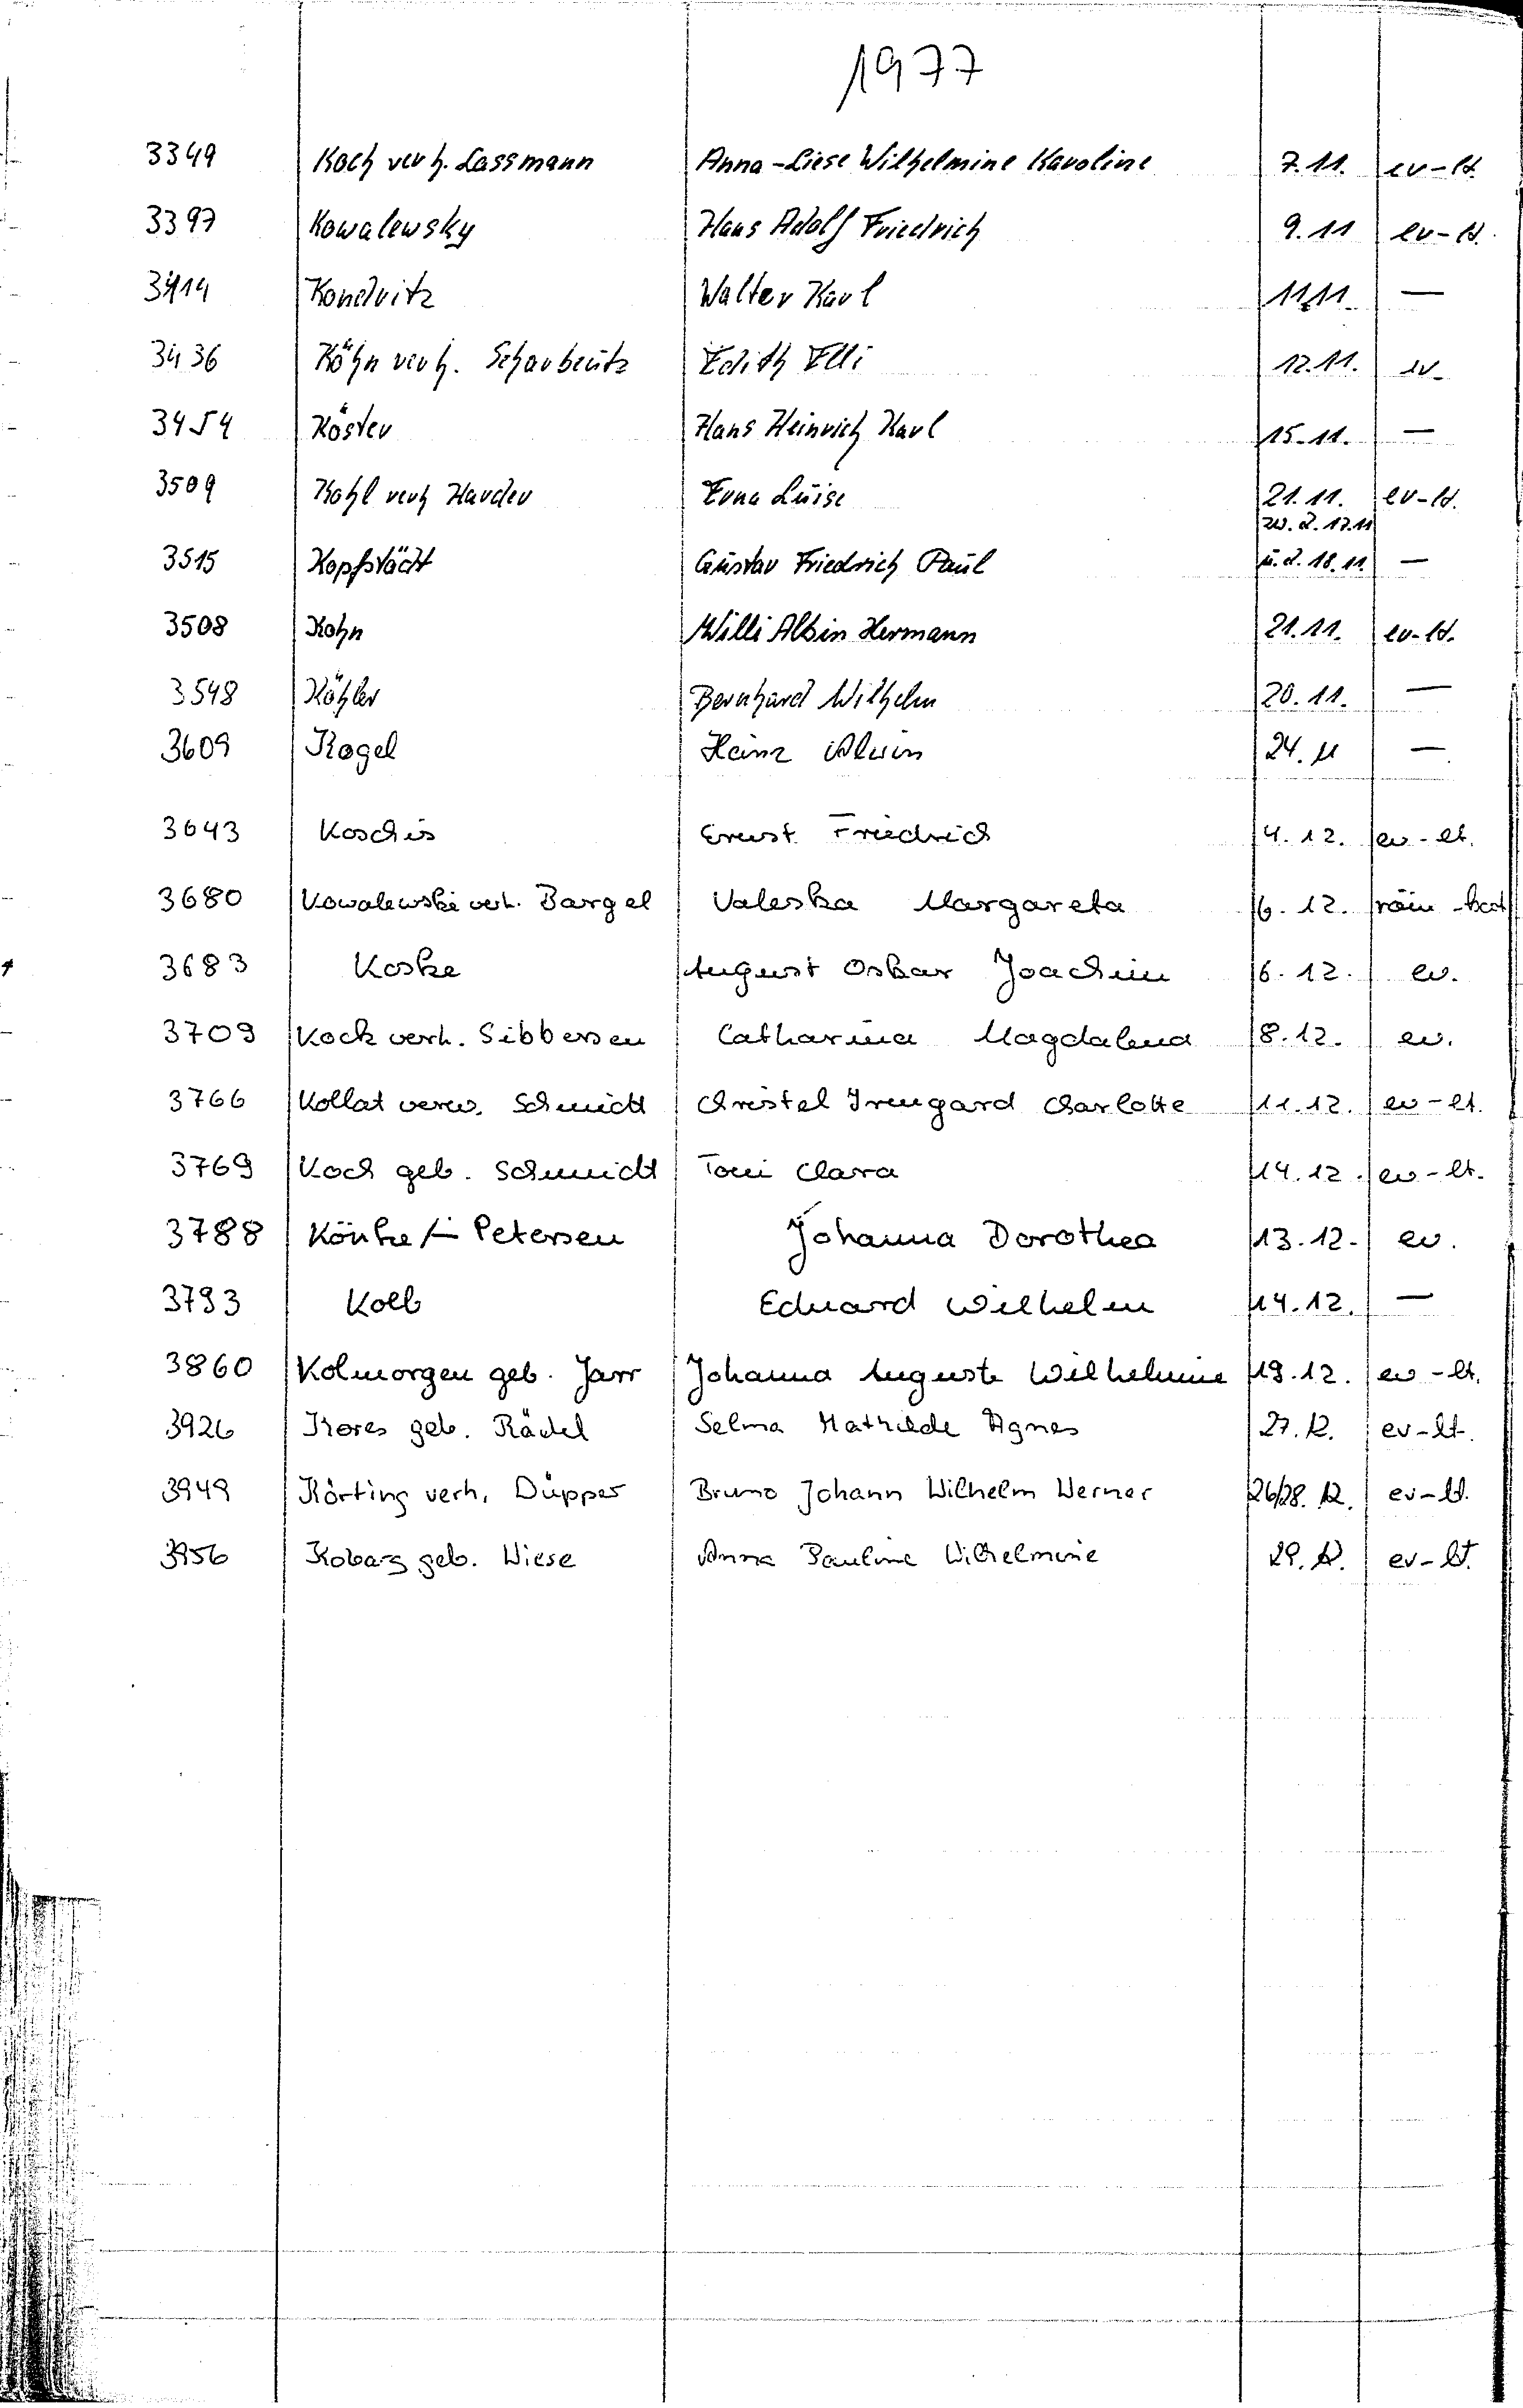 1977
3349 Koch verh. Lassmann Anna-Liese Wilhelmine Karoline 7.11. ev-lt.
3397 Kowalewsky Hans Adolf Friedrich 9.11 ev-lt.
3414 Kondritz Walter Karl 11.11. —
3436 Köhn verh. Scharbeutz Edith Elli 12.11. ev.
3454 Köster Hans Heinrich Karl 15.11. —
3509 Kohl verh Harder Erna Luise 21.11. ev-lt.
zw. d. 17.11
3515 Kopfstädt Gustav Friedrich Paul u. d. 18.11. —
3508 Kohn Willi Albin Hermann 21.11. ev-lt.
3548 Köhler Bernhard Wilhelm 20.11. —
3609 Kogel Heinz Alwin 24.11 —
3643 Koschis Ernst Friedrich 4.12. ev-lt.
3680 Kowalewski verh. Bargel Valeska Margareta 6.12. röm-kath
3683 Koske August Oskar Joachim 6.12. ev.
3709 Kock verh. Sibbersen Catharina Magdalena 8.12. ev.
3766 Kollat verw. Schmidt Christel Irmgard Charlotte 11.12. ev-lt.
3769 Koch geb. Schmidt Toni Clara 14.12. ev-lt.
3788 Könke /- Petersen Johanna Dorothea 13.12. ev.
3793 Kolb Eduard Wilhelm 14.12. —
3860 Kolmorgen geb. Jarr Johanna Auguste Wilhelmine 19.12. ev-lt.
3926 Kores geb. Rädel Selma Mathilde Agnes 27.12. ev-lt.
3949 Körting verh. Düpper Bruno Johann Wilhelm Werner 26/28.12. ev-lt.
3956 Kobarg geb. Wiese Anna Pauline Wilhelmine 29.12. ev-lt.